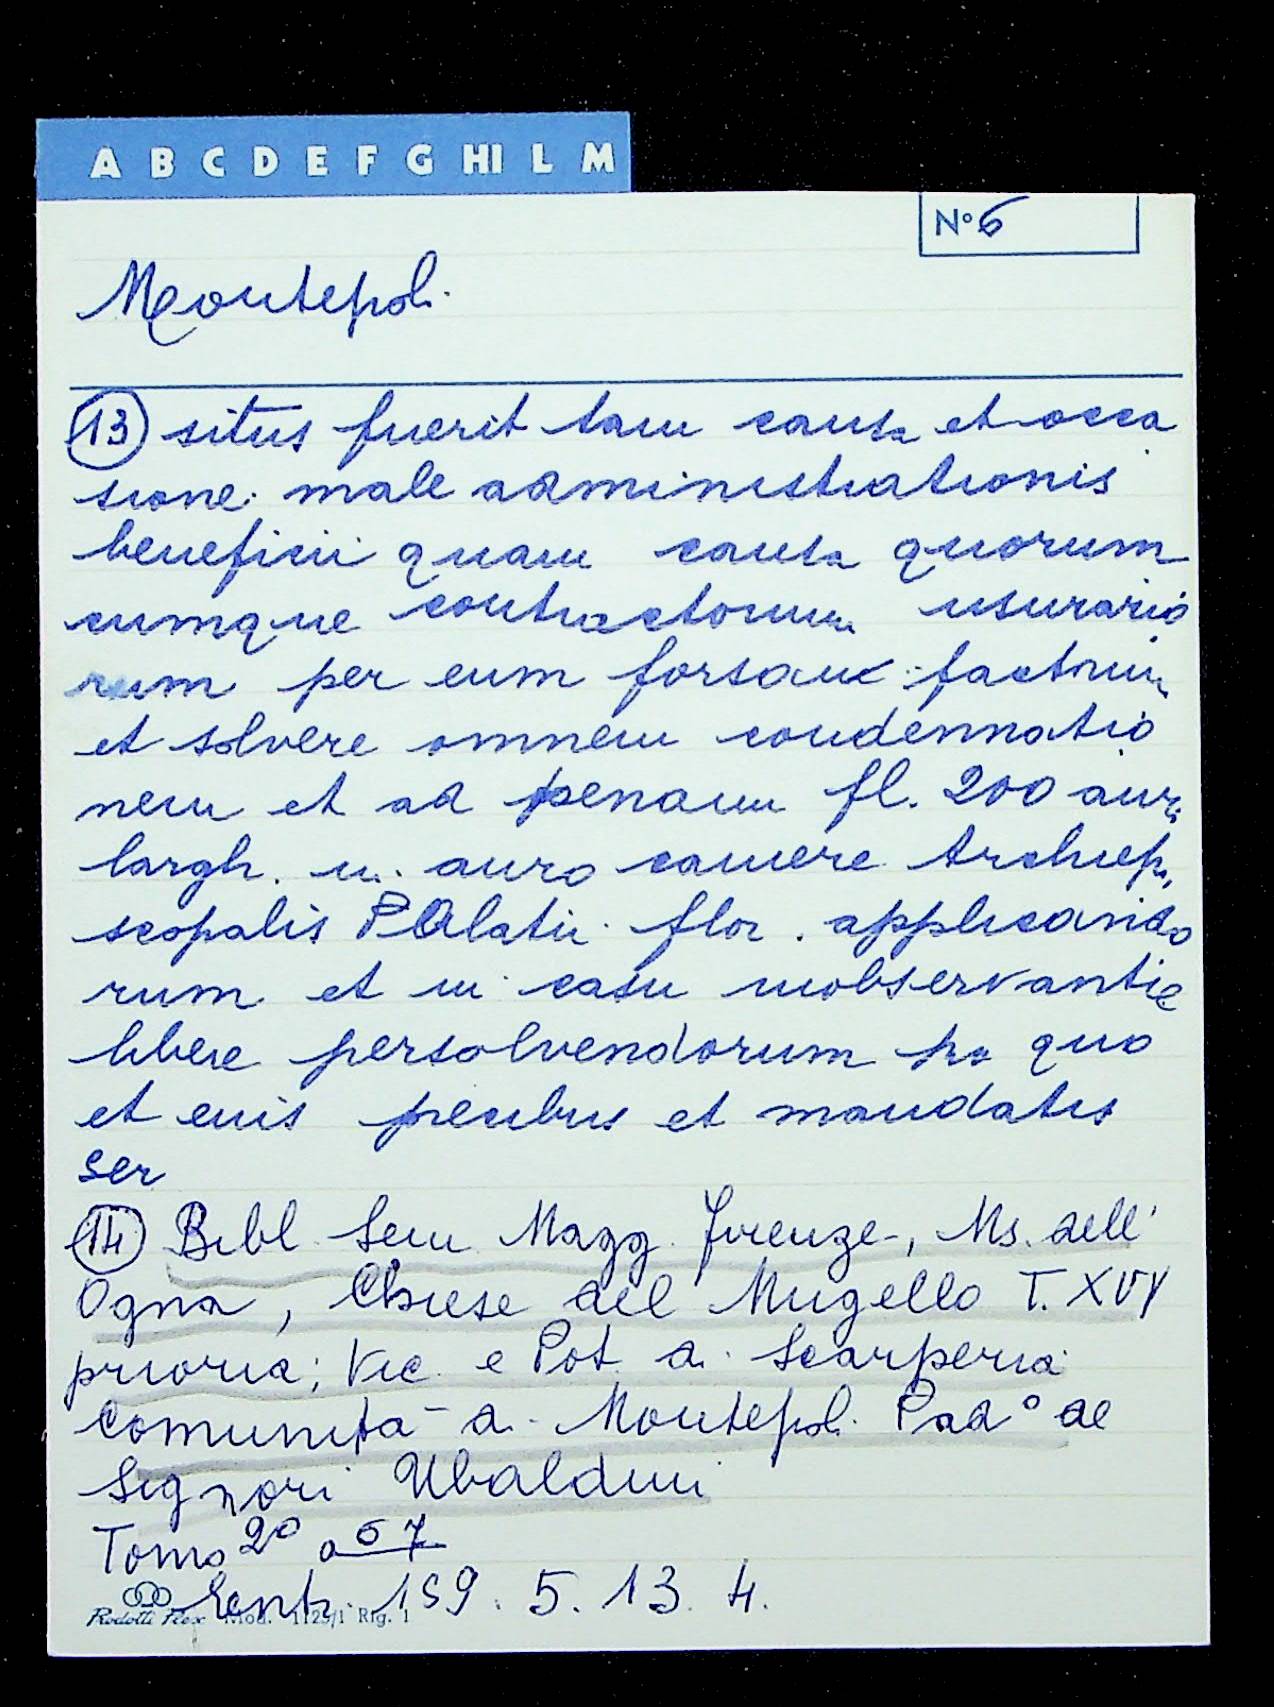 A B C D E F G HI L M
N° 6
Montepoli
13 situs fuerit tam causa et occa
sione male administrationis
beneficii quam causa quorum
cumque contractorum usurario
rum per eum forsan factorum
et solvere omnem condennatio
nem et ad penam fl. 200 auri
largh. in auro camere Archiepi
scopalis Palatii flor. applicando
rum et in casu inobservantie
libere persolvendorum pro quo
et eius precibus et mandatis
ser
14 Bibl Sem Magg Firenze, Ms. dell'
Ogna, Chiese del Mugello T. XVI
prioria; Vic. e Pot. di Scarperia
Comunità di Montepoli Pad° de
Signori Ubaldini
Tomo 2° a 67
159. 5. 13. 4.
Rodotti Flex Mod. 1125/1 Rig. 1